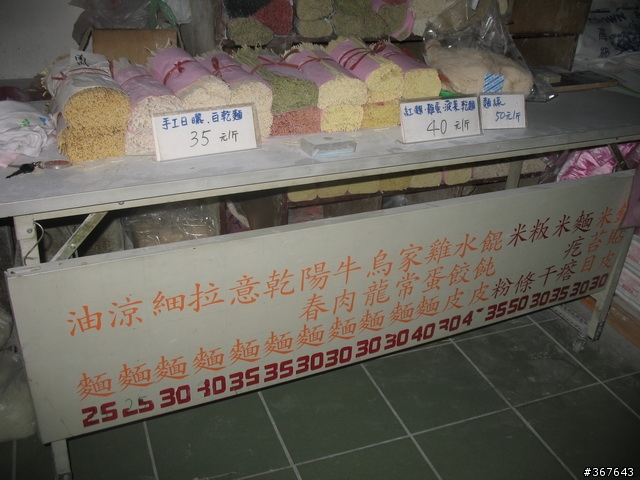 手工日曬.白乾麵
35元/斤
紅麴.雞蛋.菠菜乾麵
40元/斤
麵線
50元/斤
油麵 25
涼麵 25
細麵 30
拉麵 30
意麵 35
乾麵 35
陽春麵 30
牛肉麵 30
烏龍麵 30
家常麵 30
雞蛋麵 40
水餃皮 30
餛飩皮 4
米粉 35
粄條 50
米干 30
麵疙瘩 35
米苔目 30
肉 30
#367643